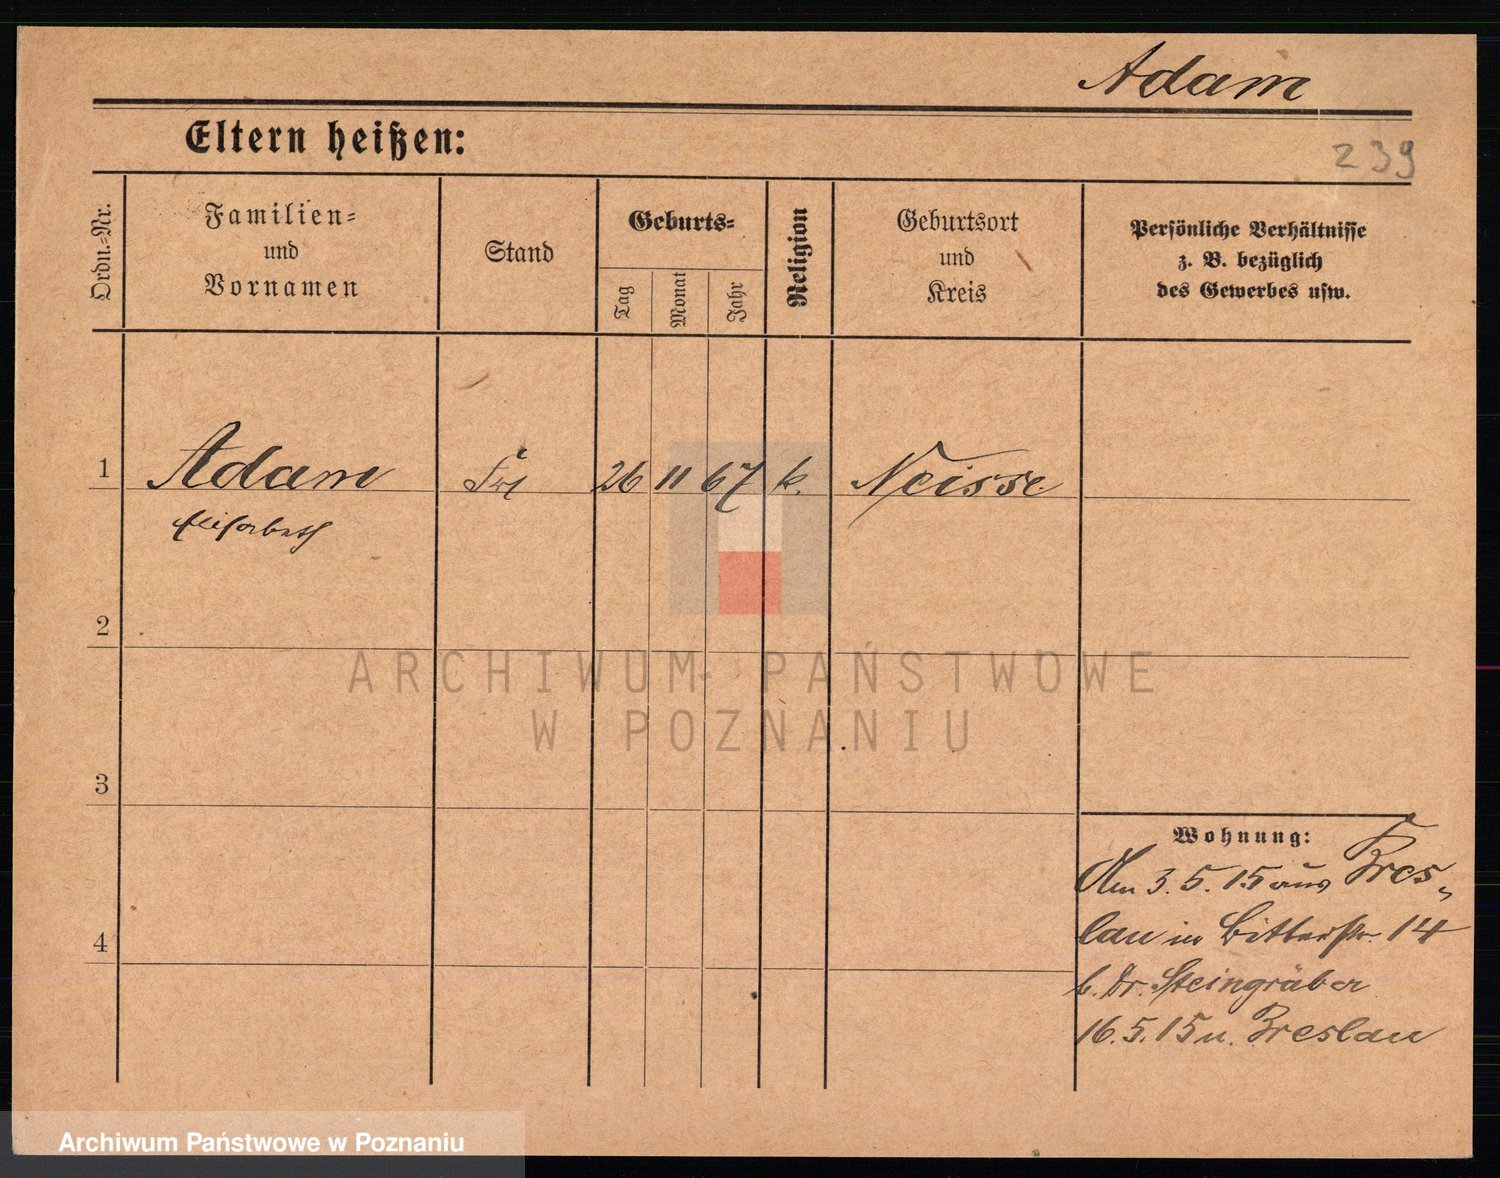 Adam
Eltern heißen:
239
Ordn.-Nr.
Familien-
und
Vornamen
Stand
Geburts-
Tag
Monat
Jahr
Religion
Geburtsort
und
Kreis
Persönliche Verhältnisse
z. B. bezüglich
des Gewerbes usw.
1 Adam Frl 26 11 67 k. Neisse
Elisabeth
2
ARCHIWUM PAŃSTWOWE
W POZNANIU
3
Wohnung:
Am 3.5.15 aus Bres-
lau in Bitterstr. 14
4
b. Dr. Steingräber
16.5.15 n. Breslau
Archiwum Państwowe w Poznaniu